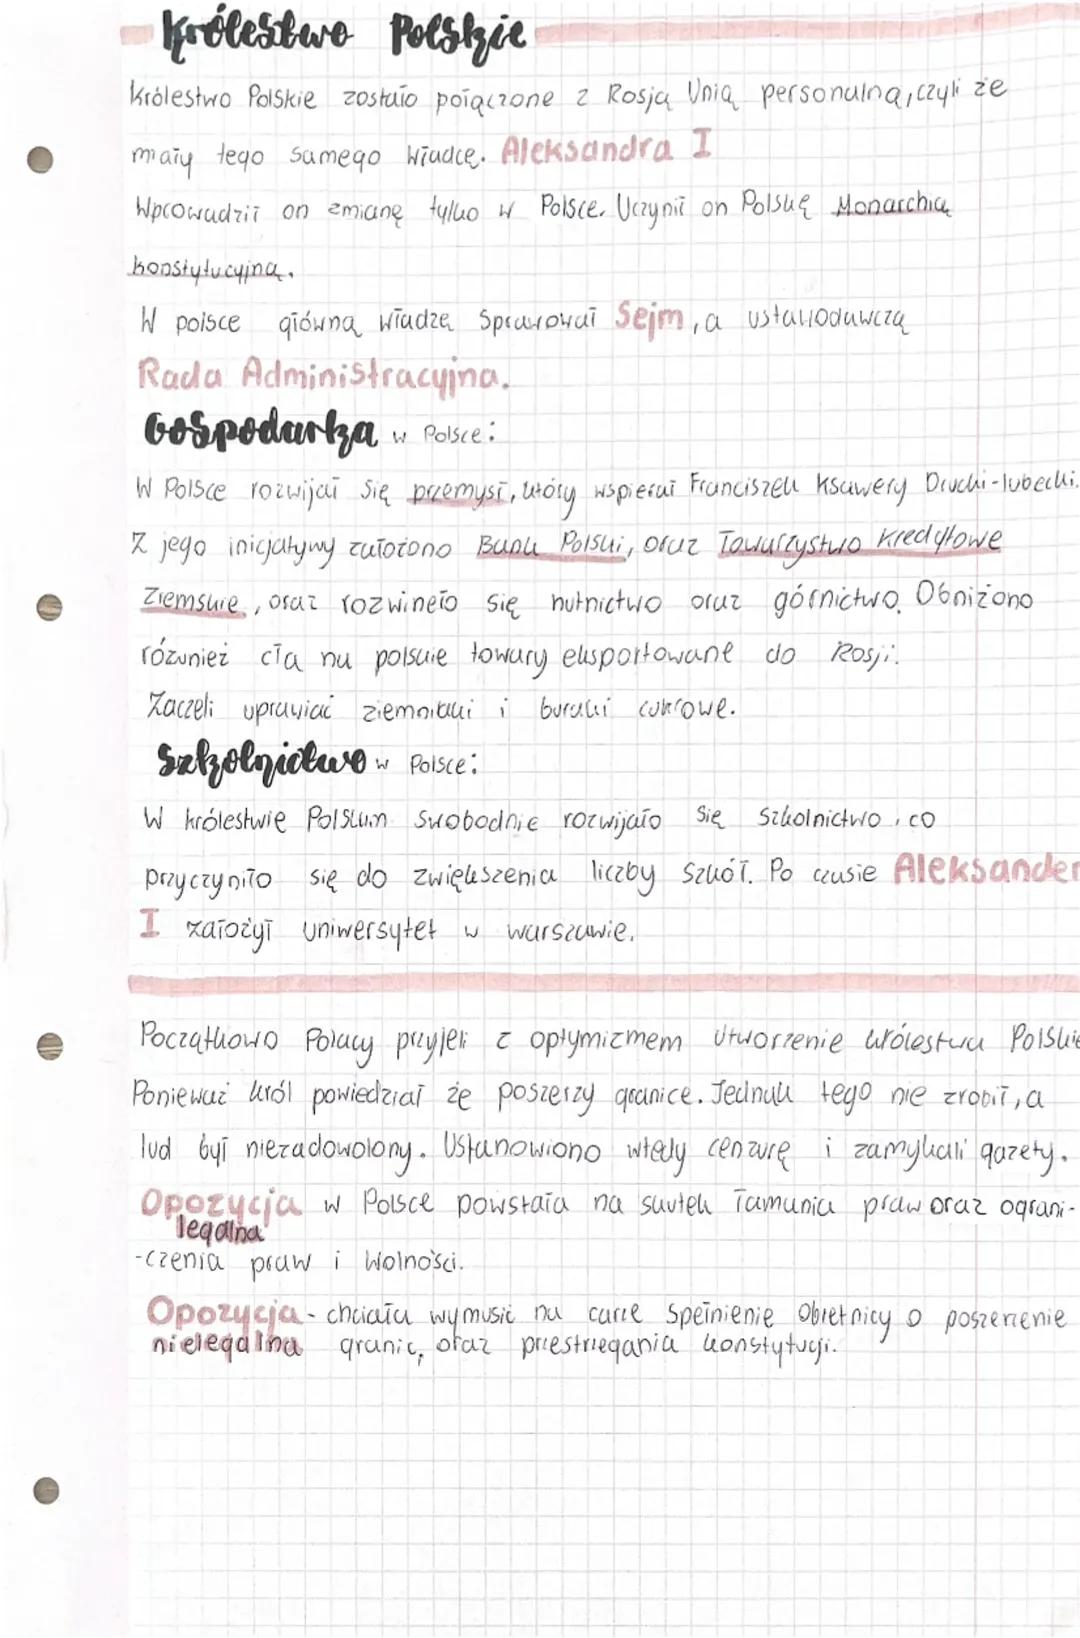 Królestwo Polskie
Królestwo Polskie zostało połączone z Rosją Unią personalną, czyli że
miały tego samego władcę. Aleksandra I
Wprowadził on zmianę tylko w Polsce. Uczynił on Polskę Monarchią
konstytucyjną.
W polsce główną władzę sprawował Sejm, a ustawodawczą
Rada Administracyjna.
Gospodarka w Polsce:
W Polsce rozwijał się przemysł, który wspierał Franciszek Ksawery Drucki-lubecki.
Z jego inicjatywy założono Bank Polski, oraz Towarzystwo Kredytowe
Ziemskie, oraz rozwineło się hutnictwo oraz górnictwo. Obniżono
rózwnież cła na polskie towary eksportowane do Rosji.
Zaczeli uprawiać ziemniaki i buraki cukrowe.
Szkolnictwo w Polsce:
W królestwie Polskim swobodnie rozwijało się szkolnictwo, co
przyczyniło się do zwiększenia liczby szkół. Po czasie Aleksander
I założył uniwersytet w warszawie.
Początkowo Polacy przyjeli z optymizmem utworzenie królestwa Polskie
Ponieważ król powiedział że poszerzy granice. Jednak tego nie zrobił, a
lud był niezadowolony. Ustanowiono wtedy cenzurę i zamykali gazety.
Opozycja w Polsce powstała na skutek łamania praw oraz ograni-
legalna
-czenia praw i Wolności.
Opozycja - chciała wymusić na carze spełnienie obietnicy o poszerzenie
nielegalna granic, oraz przestrzegania konstytucji.